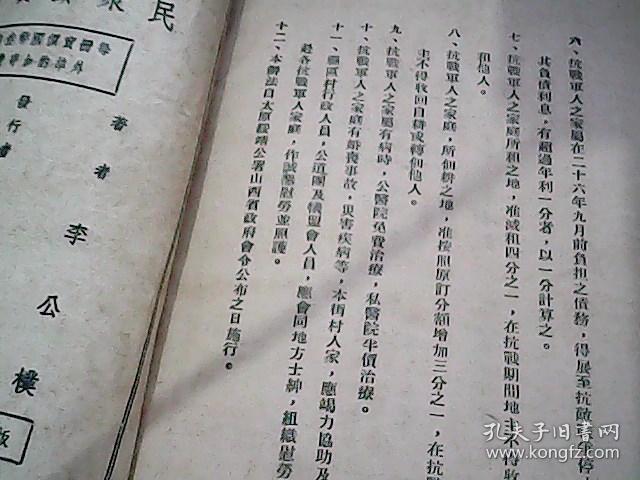 六、抗戰軍人之家屬在二十六年九月前負担之債務，得展至抗敵
其負債利息，有超過年利一分者，以一分計算之。
七、抗戰軍人之家庭所租之地，准減租四分之一，在抗戰期間地主不得收
和他人。
八、抗戰軍人之家庭，所佃耕之地，准按照原訂分額增加三分之一，在抗戰
主不得收回自耕或轉佃他人。
九、抗戰軍人之家屬有病時，公醫院免費治療，私醫院半價治療。
十、抗戰軍人之家庭有婚喪事故，災害疾病等，本街村人家，應竭力協助及
十一、縣區村行政人員，公道團及犧盟會人員，應會同地方士紳，組織慰勞
赴各抗戰軍人家庭，作誠懇慰勞並照護。
十二、本辦法自太原綏靖公署山西省政府會令公布之日施行。
民
著者 李公樸
發行者
版
孔夫子旧书网
kongfz.com